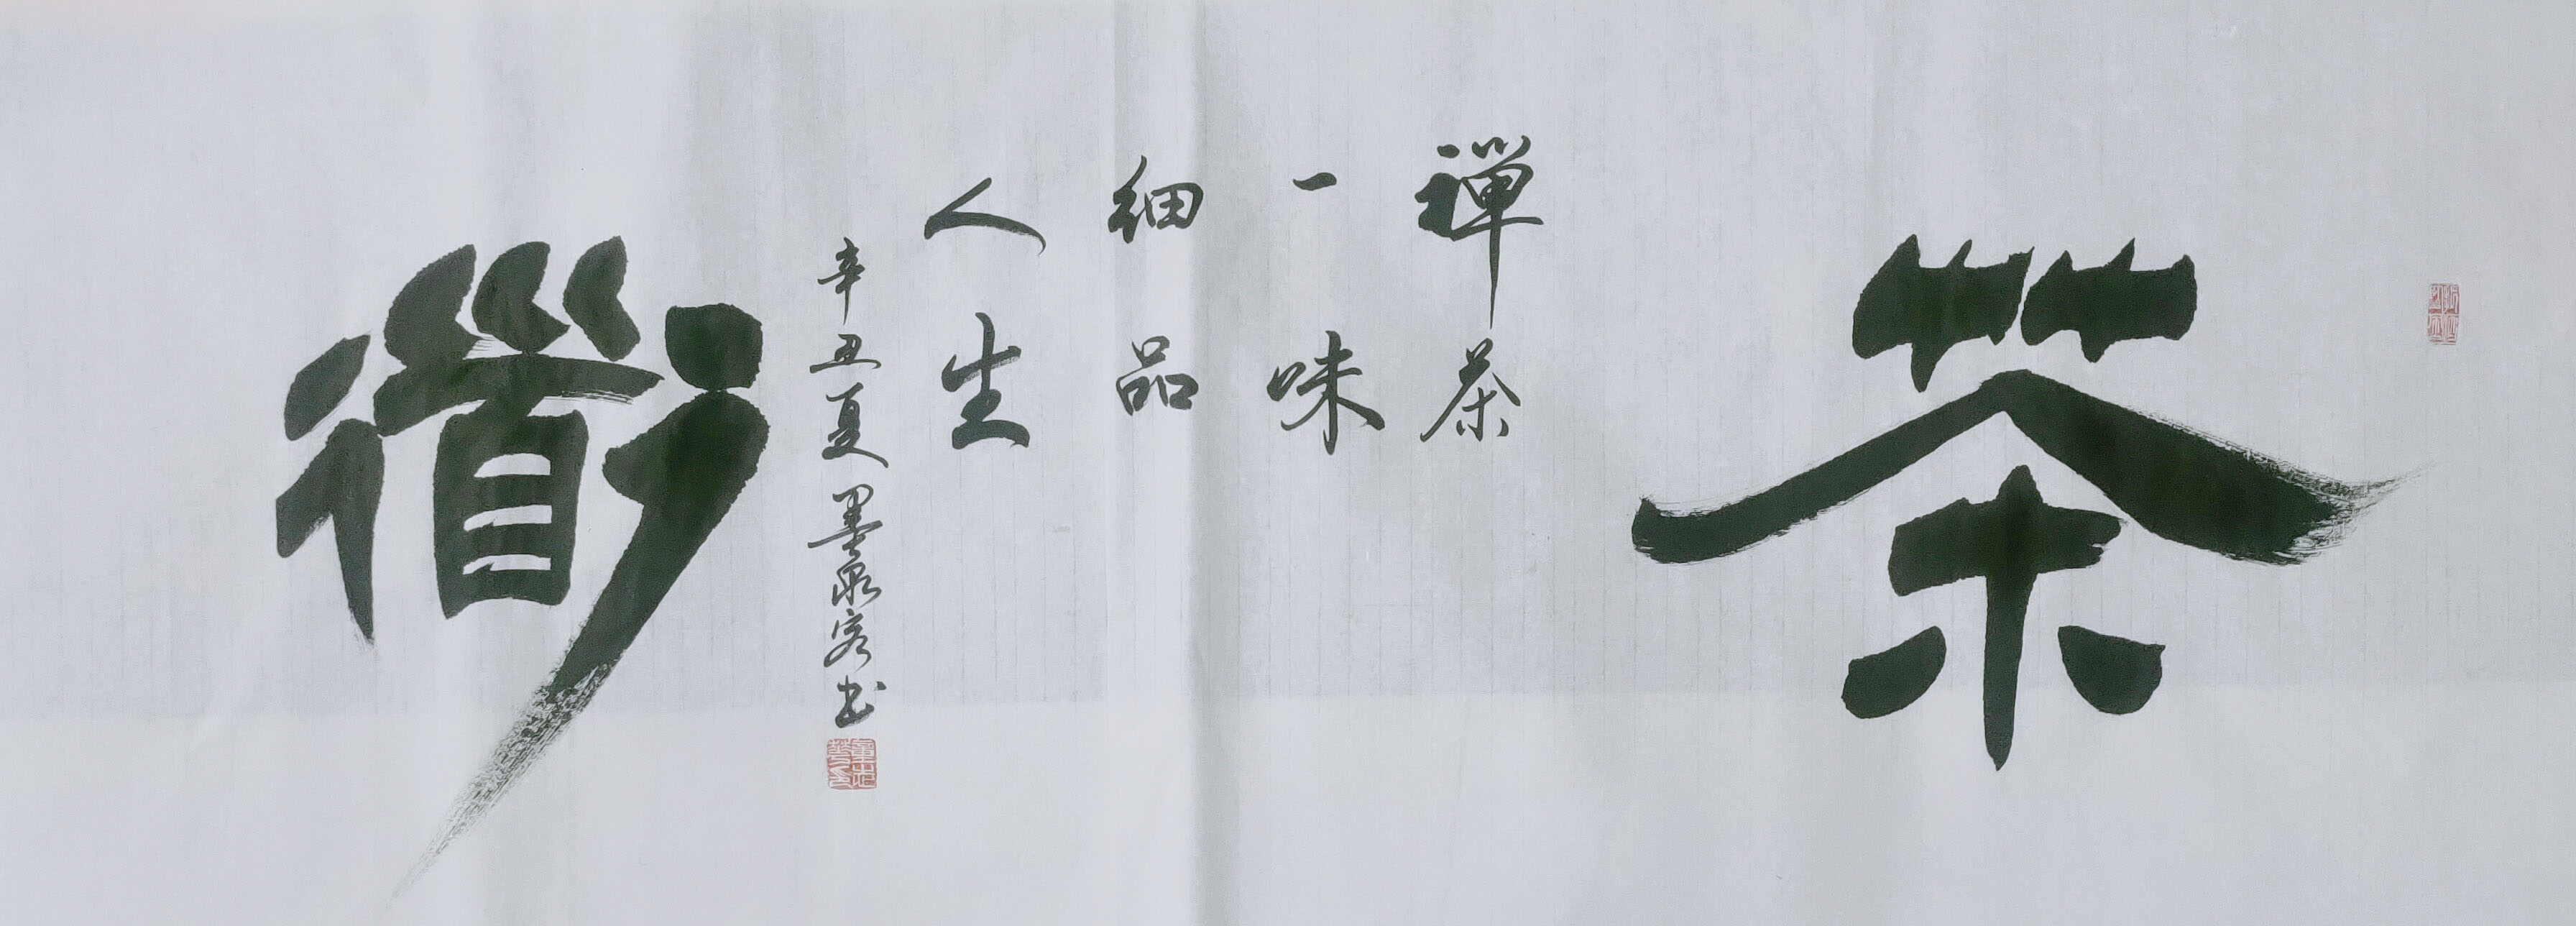 茶
禅茶
一味
细品
人生
辛丑夏墨泉客书
衜